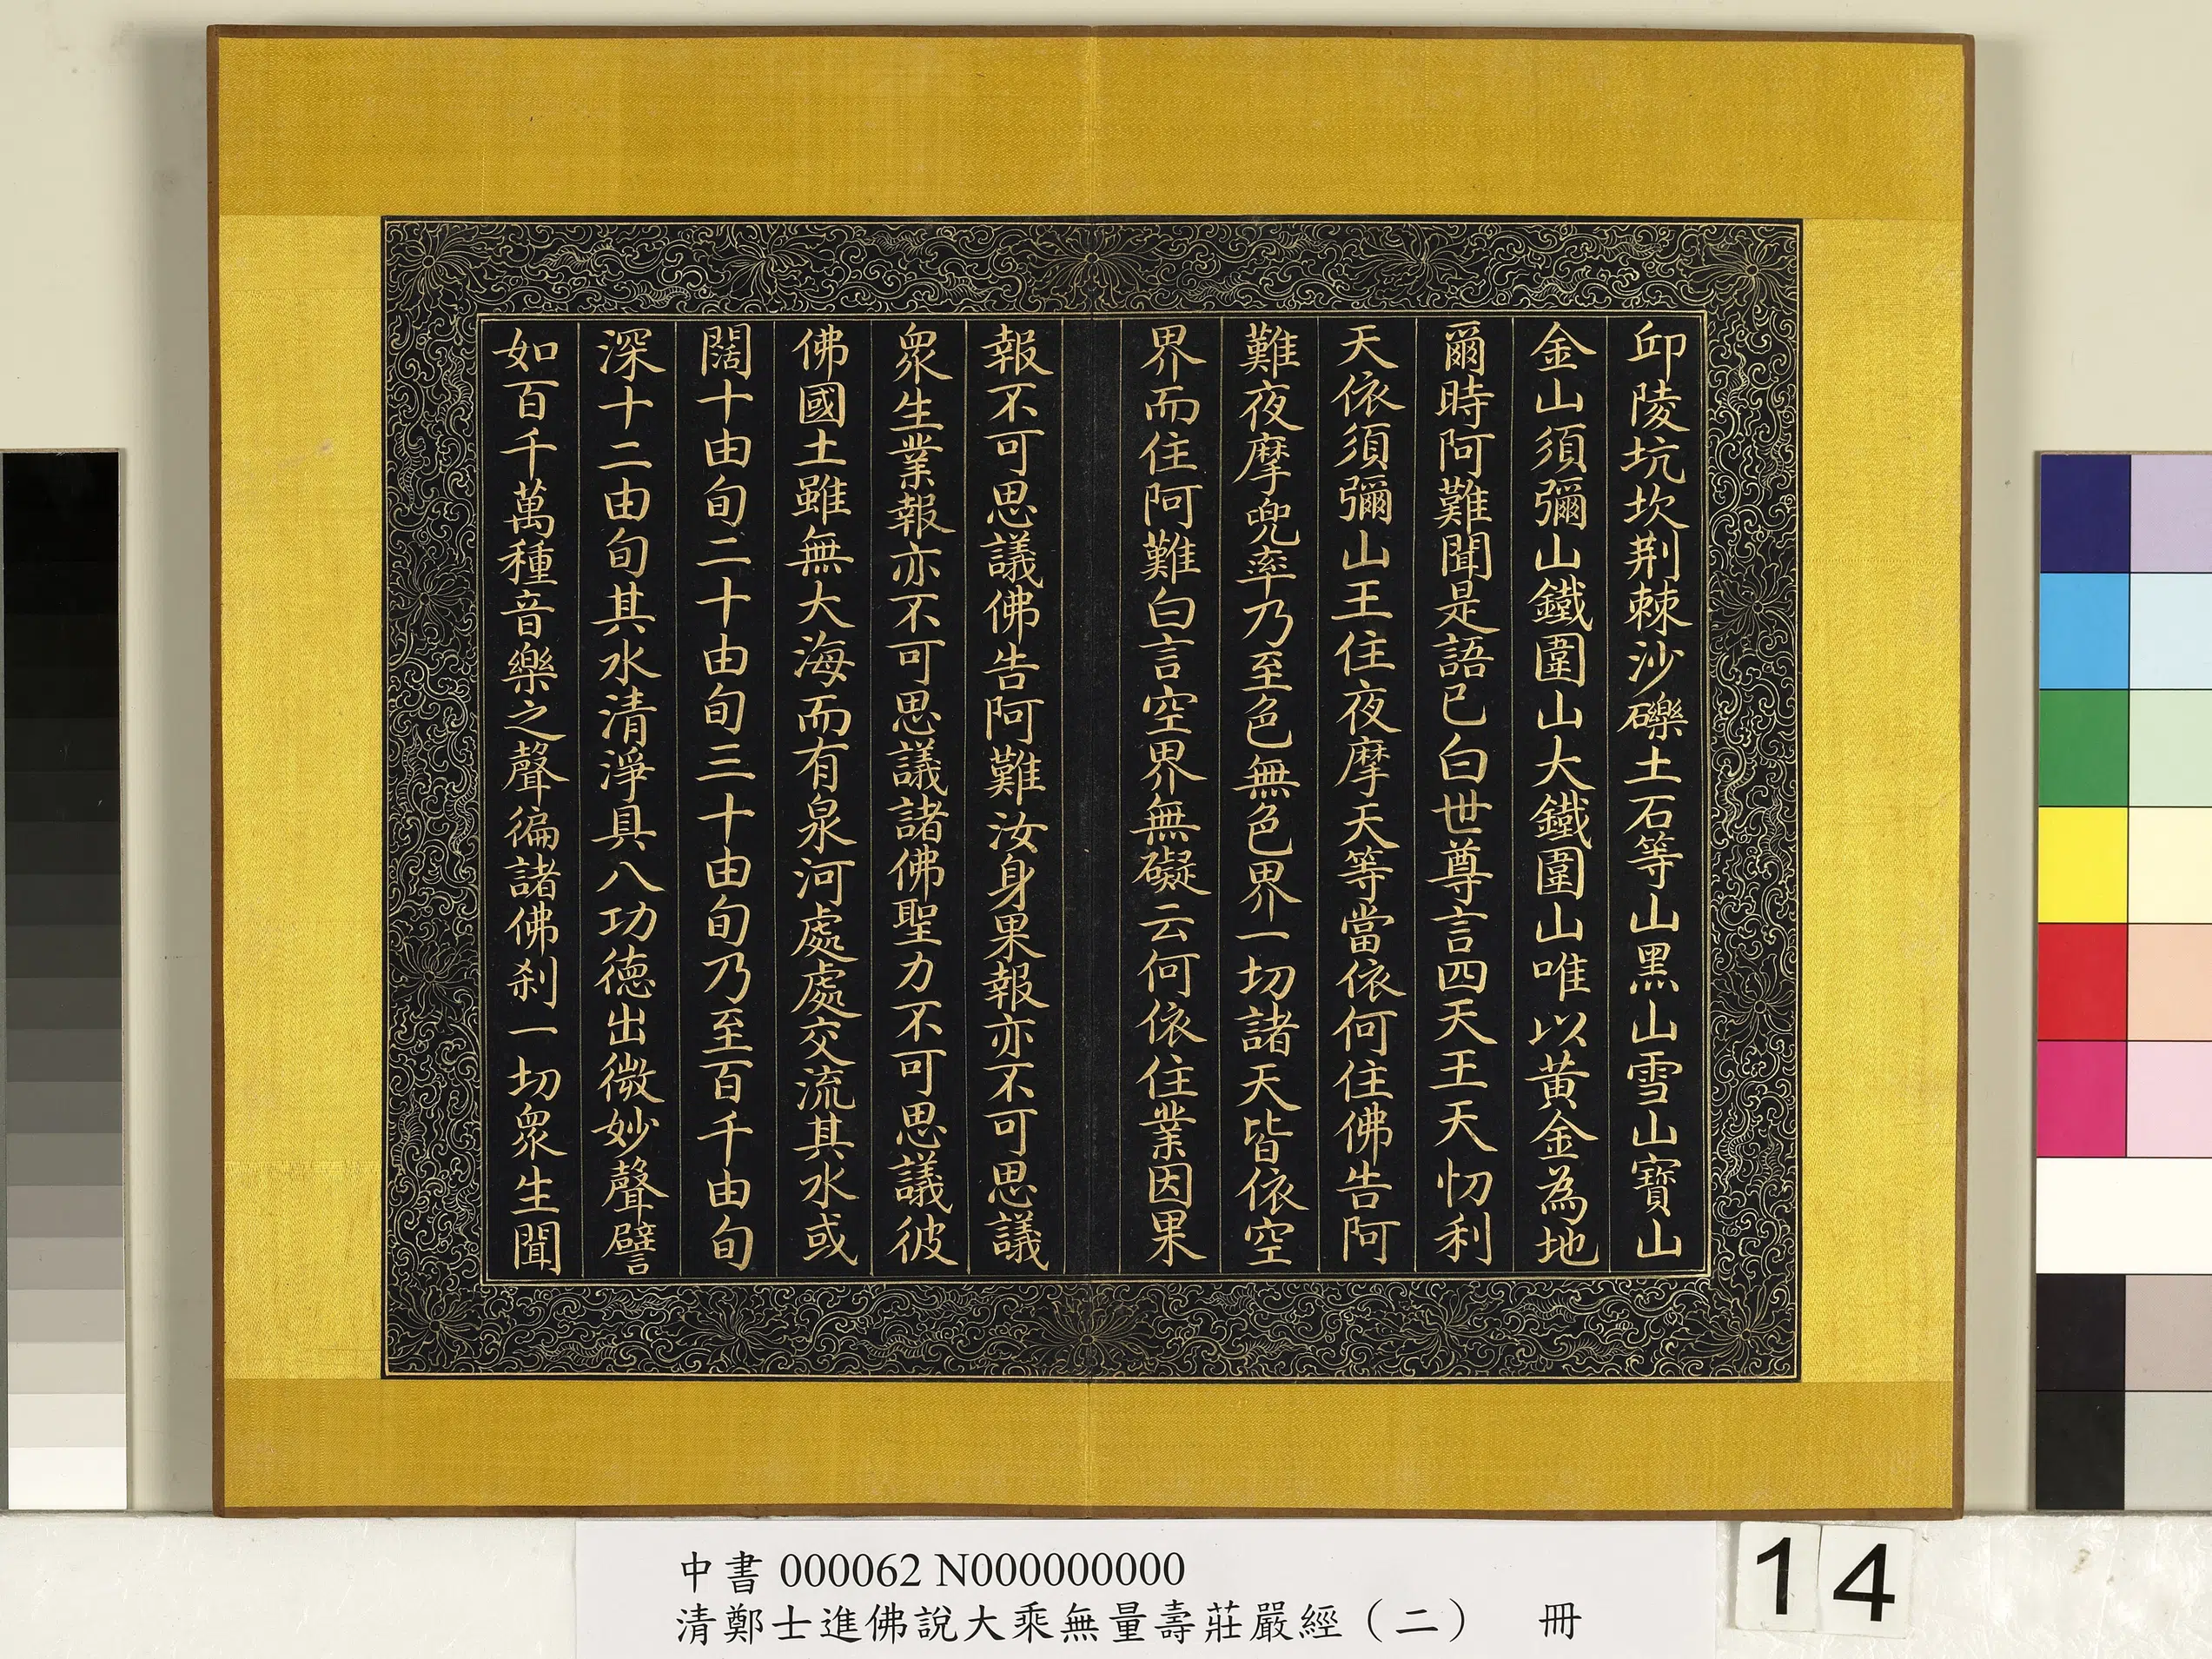 邱陵坑坎荆棘沙礫土石等山黑山雪山寶山
金山須彌山鐵圍山大鐵圍山唯以黃金為地
爾時阿難聞是語已白世尊言四天王天忉利
天依須彌山王住夜摩天等當依何住佛告阿
難夜摩兜率乃至色無色界一切諸天皆依空
界而住阿難白言空界無礙云何依住業因果
報不可思議佛告阿難汝身果報亦不可思議
衆生業報亦不可思議諸佛聖力不可思議彼
佛國土雖無大海而有泉河處處交流其水或
闊十由旬二十由旬三十由旬乃至百千由旬
深十二由旬其水清淨具八功德出微妙聲譬
如百千萬種音樂之聲徧諸佛刹一切衆生聞
中書 000062 N000000000
清鄭士進佛說大乘無量壽莊嚴經（二） 冊
14